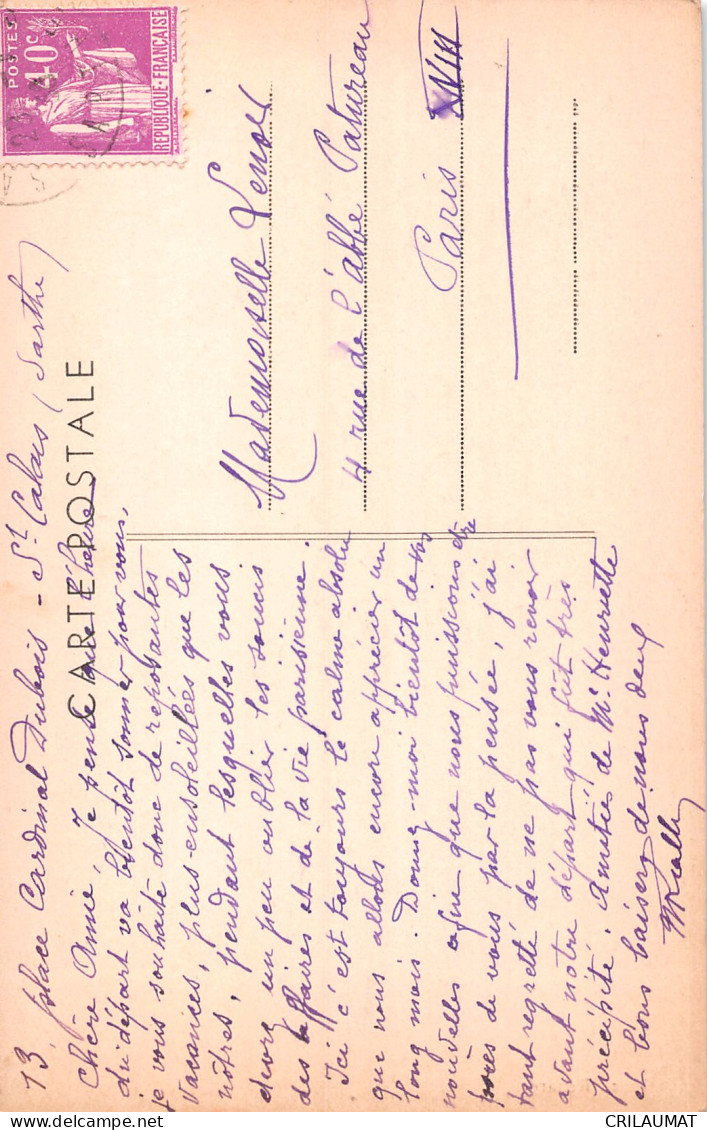 POSTES
40c
REPUBLIQUE-FRANÇAISE
CARTE POSTALE
13 place Cardinal Dubois - St Calais (Sarthe)
Chère Amie, Je pense que l'heure
du départ va bientôt sonner pour vous,
je vous souhaite donc de reposantes
vacances, plus ensoleillées que les
nôtres, pendant lesquelles vous
un peu oublier les soucis
des affaires et de la vie parisienne.
Ici c'est toujours le calme absolu
que nous allons encore apprécier un
long mois. Donnez-moi bientôt de vos
nouvelles afin que nous puissions être
près de vous par la pensée, j'ai
tant regretté de ne pas vous revoir
avant notre départ qui fut très
précipité. Amitiés de Me Henriette
et bons baisers de nous deux
Mademoiselle
4 rue de l'abbé Patureau
Paris XVIII
CRILAUMAT